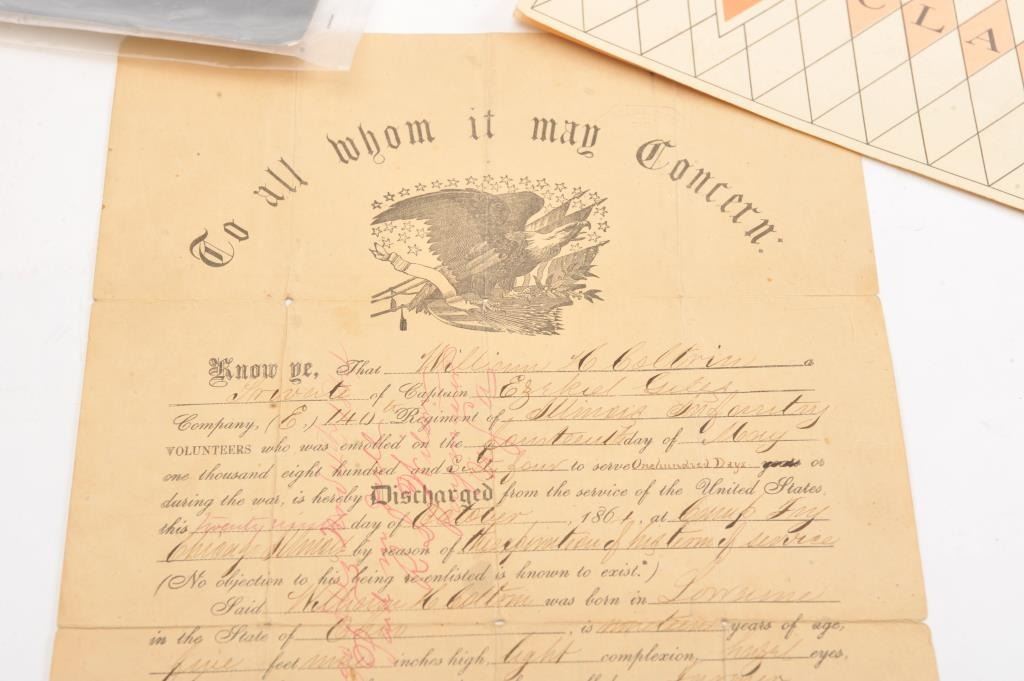 CLA
To all whom it may Concern:
Know ye, That William H Coltrin a
Private of Captain Ezekiel Giles
Company, (E,) 141st Regiment of Illinois Infantry
VOLUNTEERS who was enrolled on the fourteenth day of May
one thousand eight hundred and Sixty four to serve One hundred Days years or
during the war, is hereby Discharged from the service of the United States,
this twenty ninth day of October, 1864, at Camp Fry
Chicago Illinois by reason of the expiration of his term of service
(No objection to his being re-enlisted is known to exist.*)
Said William H Coltrin was born in
in the State of Ohio, is nineteen years of age,
five feet nine inches high, light complexion, hazel eyes,